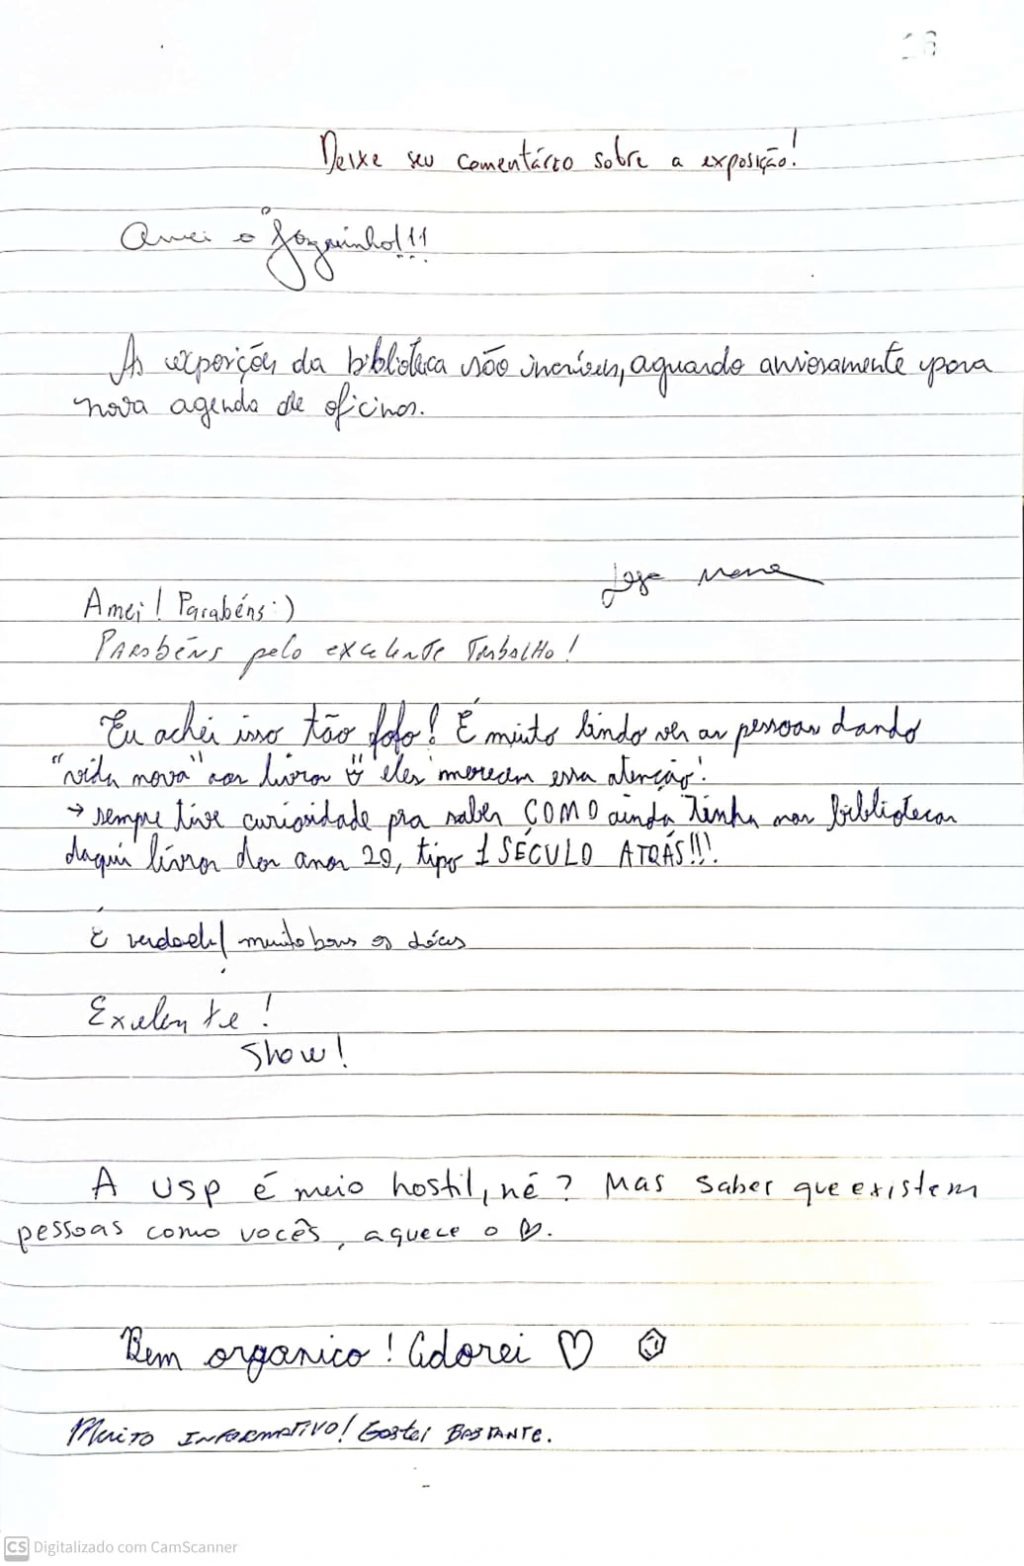 Deixe seu comentário sobre a exposição!
Amei o joguinho!!!
As exposições da biblioteca são incríveis, aguardo ansiosamente para
nova agenda de oficinas.
Amei! Parabéns :)
Parabéns pelo excelente trabalho!
Eu achei isso tão fofo! É muito lindo ver as pessoas dando
"vida nova" aos livros eles merecem essa atenção!
→ sempre tive curiosidade pra saber COMO ainda tinha nas bibliotecas
daqui livros dos anos 20, tipo 1 SÉCULO ATRÁS!!!
É verdade! muito bons os
Exelente!
Show!
A USP é meio hostil, né? Mas saber que existem
pessoas como vocês, aquece o ♡.
Bem organico! Adorei ♡
MUITO INFORMATIVO! Gostei BASTANTE.
CS Digitalizado com CamScanner